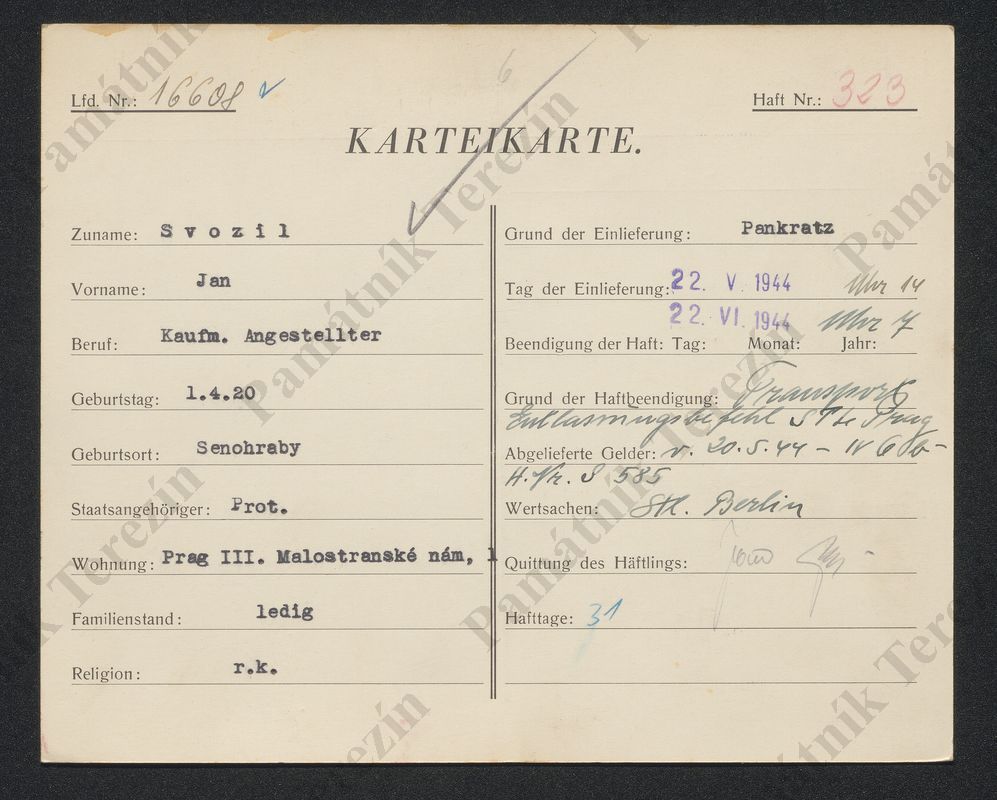 6
Lfd. Nr.: 16608
Haft Nr.: 323
KARTEIKARTE.
Zuname: Svozil
Vorname: Jan
Beruf: Kaufm. Angestellter
Geburtstag: 1.4.20
Geburtsort: Senohraby
Staatsangehöriger: Prot.
Wohnung: Prag III. Malostranské nám, 1
Familienstand: ledig
Religion: r.k.
Grund der Einlieferung: Pankratz
Tag der Einlieferung: 22. V. 1944 Uhr 14
22. VI. 1944 Uhr 7
Beendigung der Haft: Tag: Monat: Jahr:
Grund der Haftbeendigung: Transport
Entlassungsbefehl Prag
Abgelieferte Gelder: v. 20.5.44 - IV 6
H.Nr. S 585
Wertsachen: Stl. Berlin
Quittung des Häftlings:
Hafttage: 31
Památník Terezín